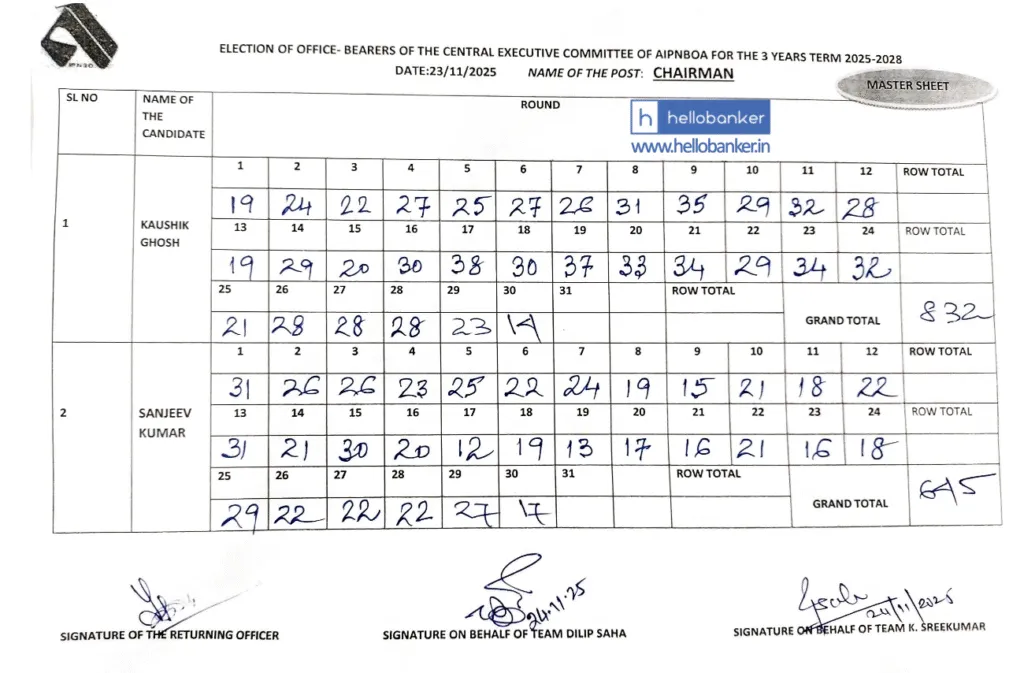 AIPNBOA
ELECTION OF OFFICE- BEARERS OF THE CENTRAL EXECUTIVE COMMITTEE OF AIPNBOA FOR THE 3 YEARS TERM 2025-2028
DATE:23/11/2025 NAME OF THE POST: CHAIRMAN
MASTER SHEET
SL NO NAME OF THE CANDIDATE ROUND
h hellobanker
www.hellobanker.in
1 2 3 4 5 6 7 8 9 10 11 12 ROW TOTAL
19 24 22 27 25 27 26 31 35 29 32 28
1 KAUSHIK GHOSH
13 14 15 16 17 18 19 20 21 22 23 24 ROW TOTAL
19 29 20 30 38 30 37 33 34 29 34 32
25 26 27 28 29 30 31 ROW TOTAL
21 28 28 28 23 14 GRAND TOTAL 832
1 2 3 4 5 6 7 8 9 10 11 12 ROW TOTAL
31 26 26 23 25 22 24 19 15 21 18 22
2 SANJEEV KUMAR
13 14 15 16 17 18 19 20 21 22 23 24 ROW TOTAL
31 21 30 20 12 19 13 17 16 21 16 18
25 26 27 28 29 30 31 ROW TOTAL
29 22 22 22 27 17 GRAND TOTAL 645
24.11.25
24/11/2025
SIGNATURE OF THE RETURNING OFFICER
SIGNATURE ON BEHALF OF TEAM DILIP SAHA
SIGNATURE ON BEHALF OF TEAM K. SREEKUMAR